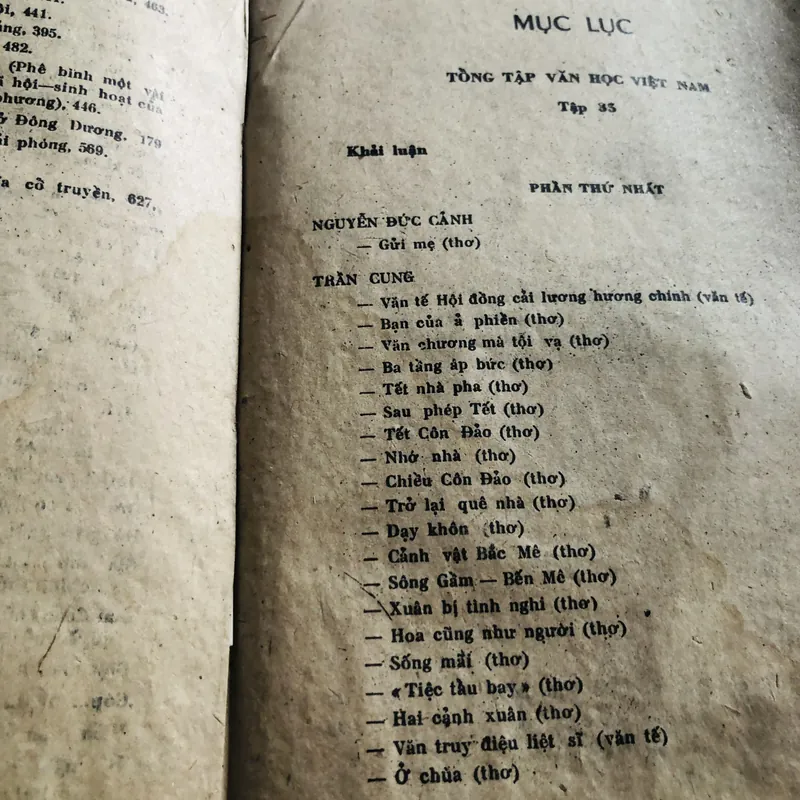 463.
441.
395.
482.
(Phê bình một vài
hội—sinh hoạt của
phương), 446.
Đông Dương, 179
phóng, 569.
cổ truyền, 627.
MỤC LỤC
TỔNG TẬP VĂN HỌC VIỆT NAM
Tập 35
Khải luận
PHẦN THỨ NHẤT
NGUYỄN ĐỨC CẢNH
— Gửi mẹ (thơ)
TRẦN CUNG
— Văn tế Hội đồng cải lương hương chính (văn tế)
— Bạn của ả phiền (thơ)
— Văn chương mà tội vạ (thơ)
— Ba tầng áp bức (thơ)
— Tết nhà pha (thơ)
— Sau phép Tết (thơ)
— Tết Côn Đảo (thơ)
— Nhớ nhà (thơ)
— Chiều Côn Đảo (thơ)
— Trở lại quê nhà (thơ)
— Dạy khôn (thơ)
— Cảnh vật Bắc Mê (thơ)
— Sông Gầm — Bến Mê (thơ)
— Xuân bị tình nghi (thơ)
— Hoa cũng như người (thơ)
— Sống mãi (thơ)
— «Tiệc tầu bay» (thơ)
— Hai cảnh xuân (thơ)
— Văn truy điệu liệt sĩ (văn tế)
— Ở chùa (thơ)